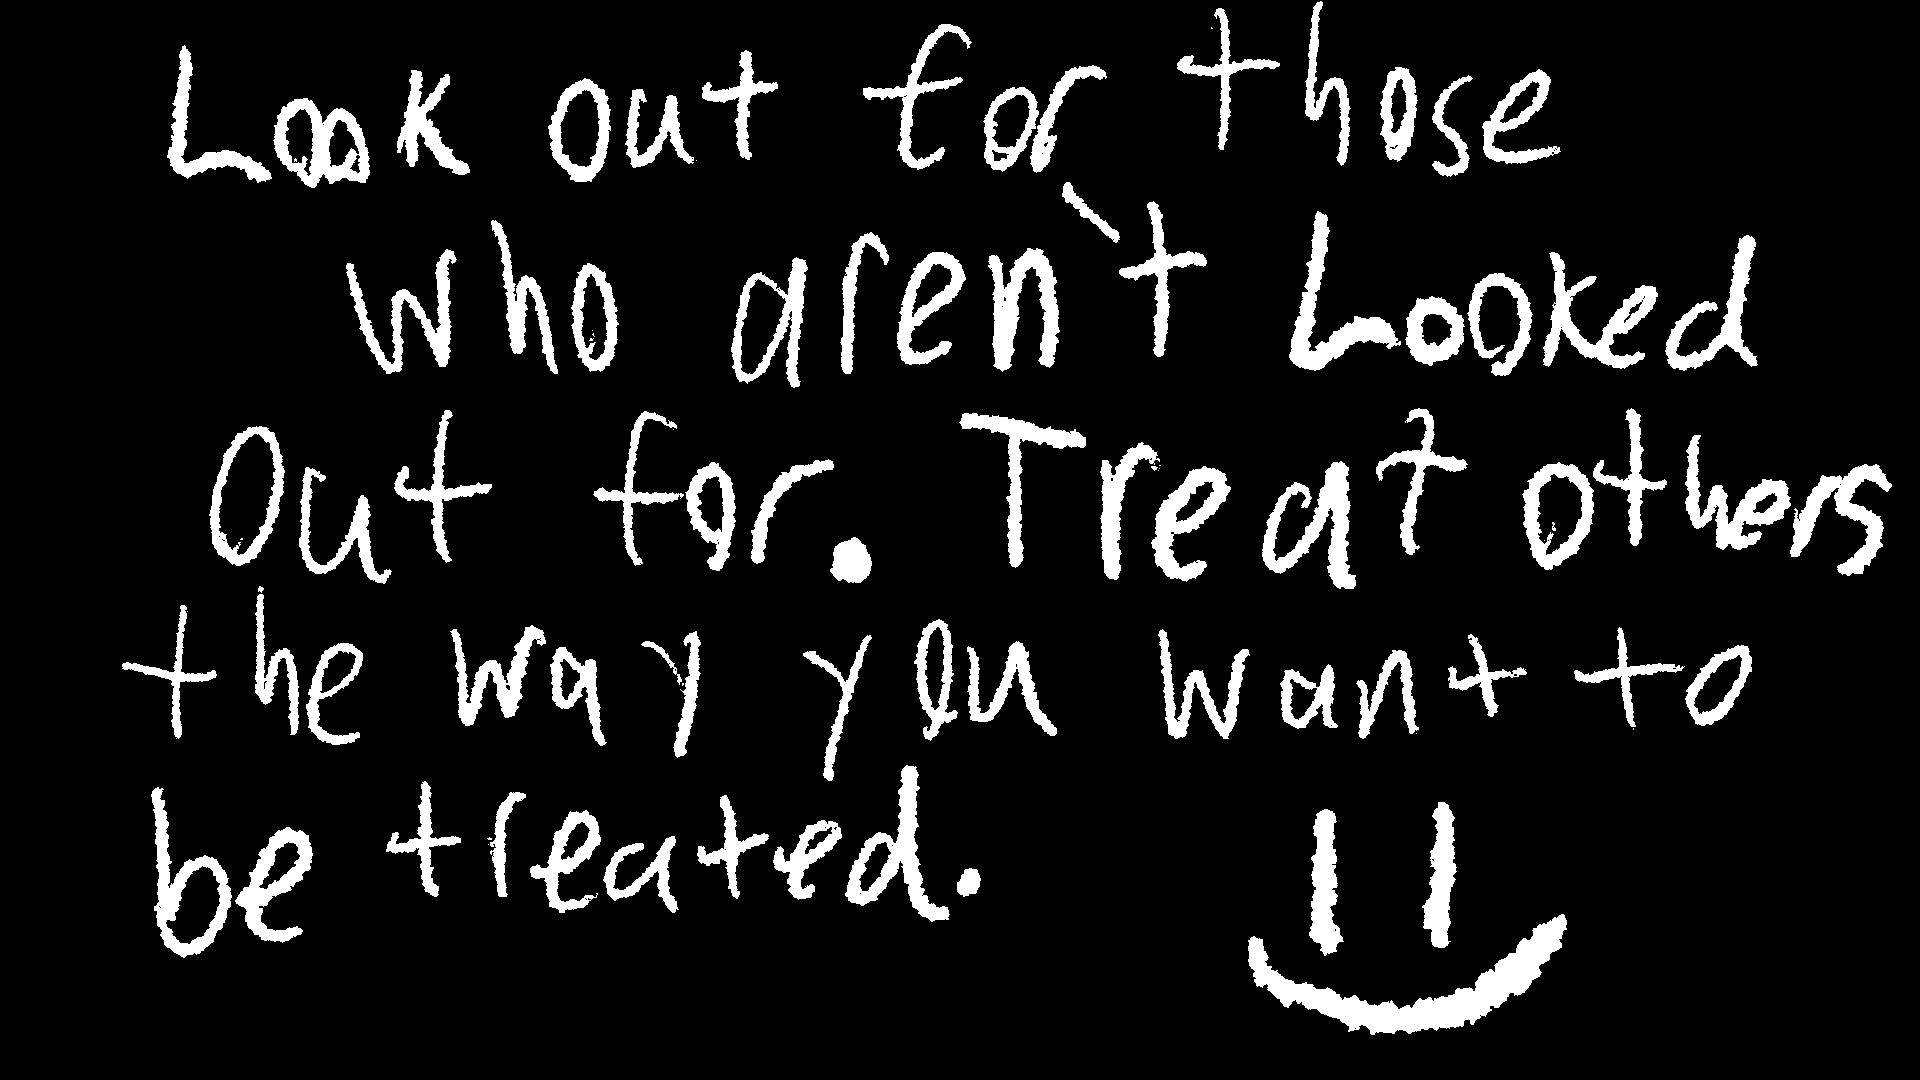 Look out for those
who aren't Looked
Out for. Treat others
the way you want to
be treated.